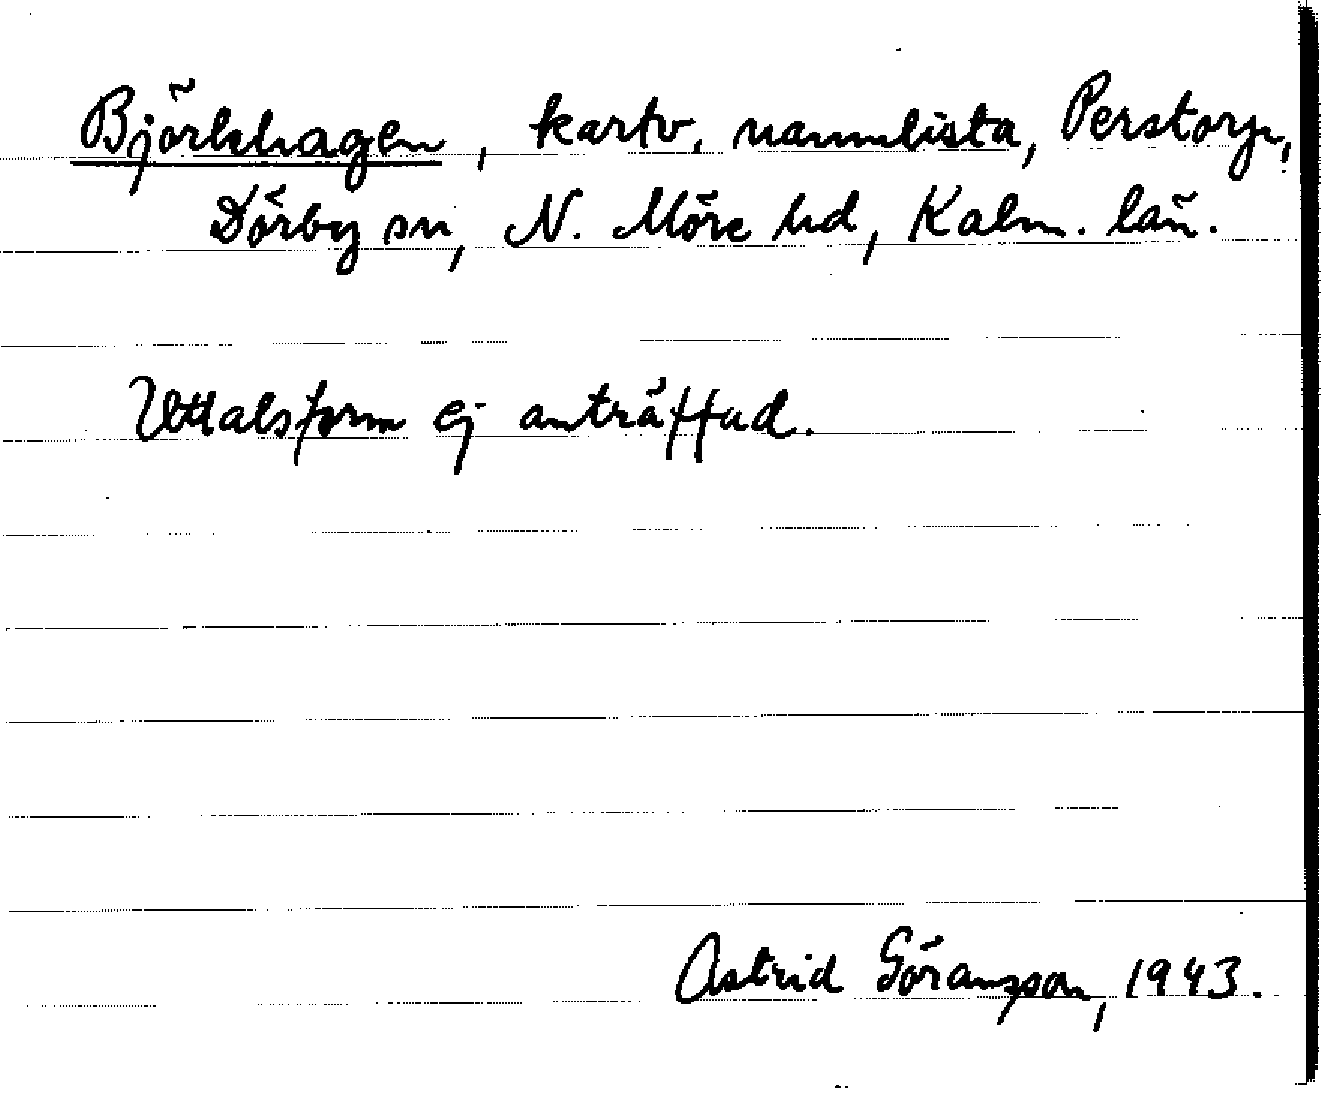 Björkhagen, kartv. namnlista, Perstorp,
Dörby sn, N. Möre hd, Kalm. län.
Uttalsform ej anträffad.
Astrid Göransson, 1943.